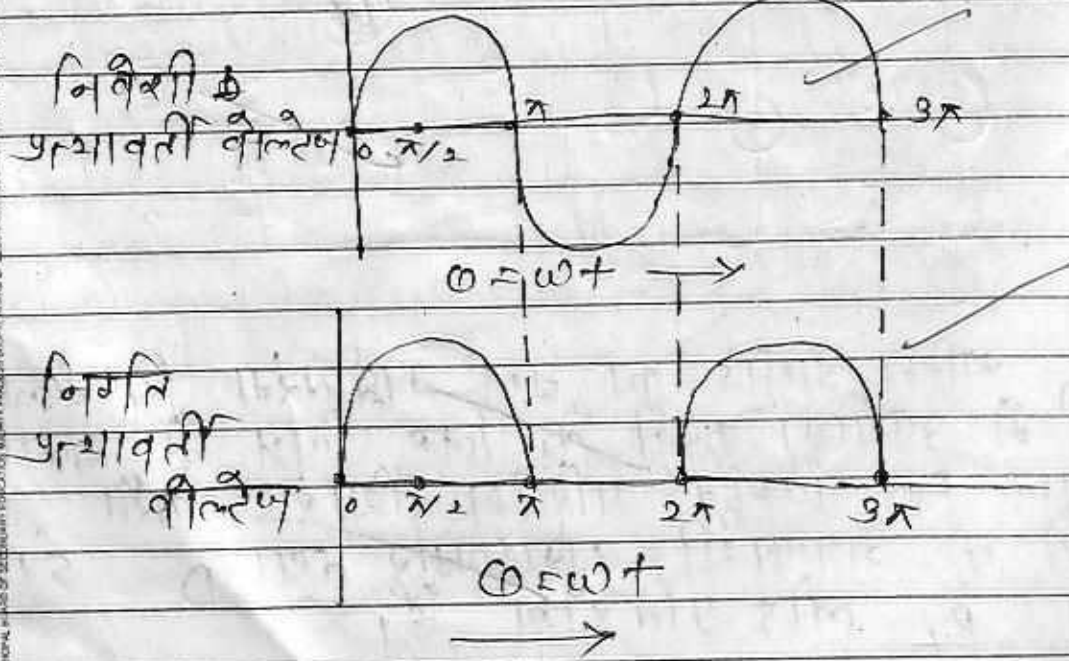 निवेशी
प्रत्यावर्ती वोल्टेज
0 π/2 π 2π 3π
θ = ωt →
निर्गत
प्रत्यावर्ती
वोल्टेज
0 π/2 π 2π 3π
θ = ωt
→